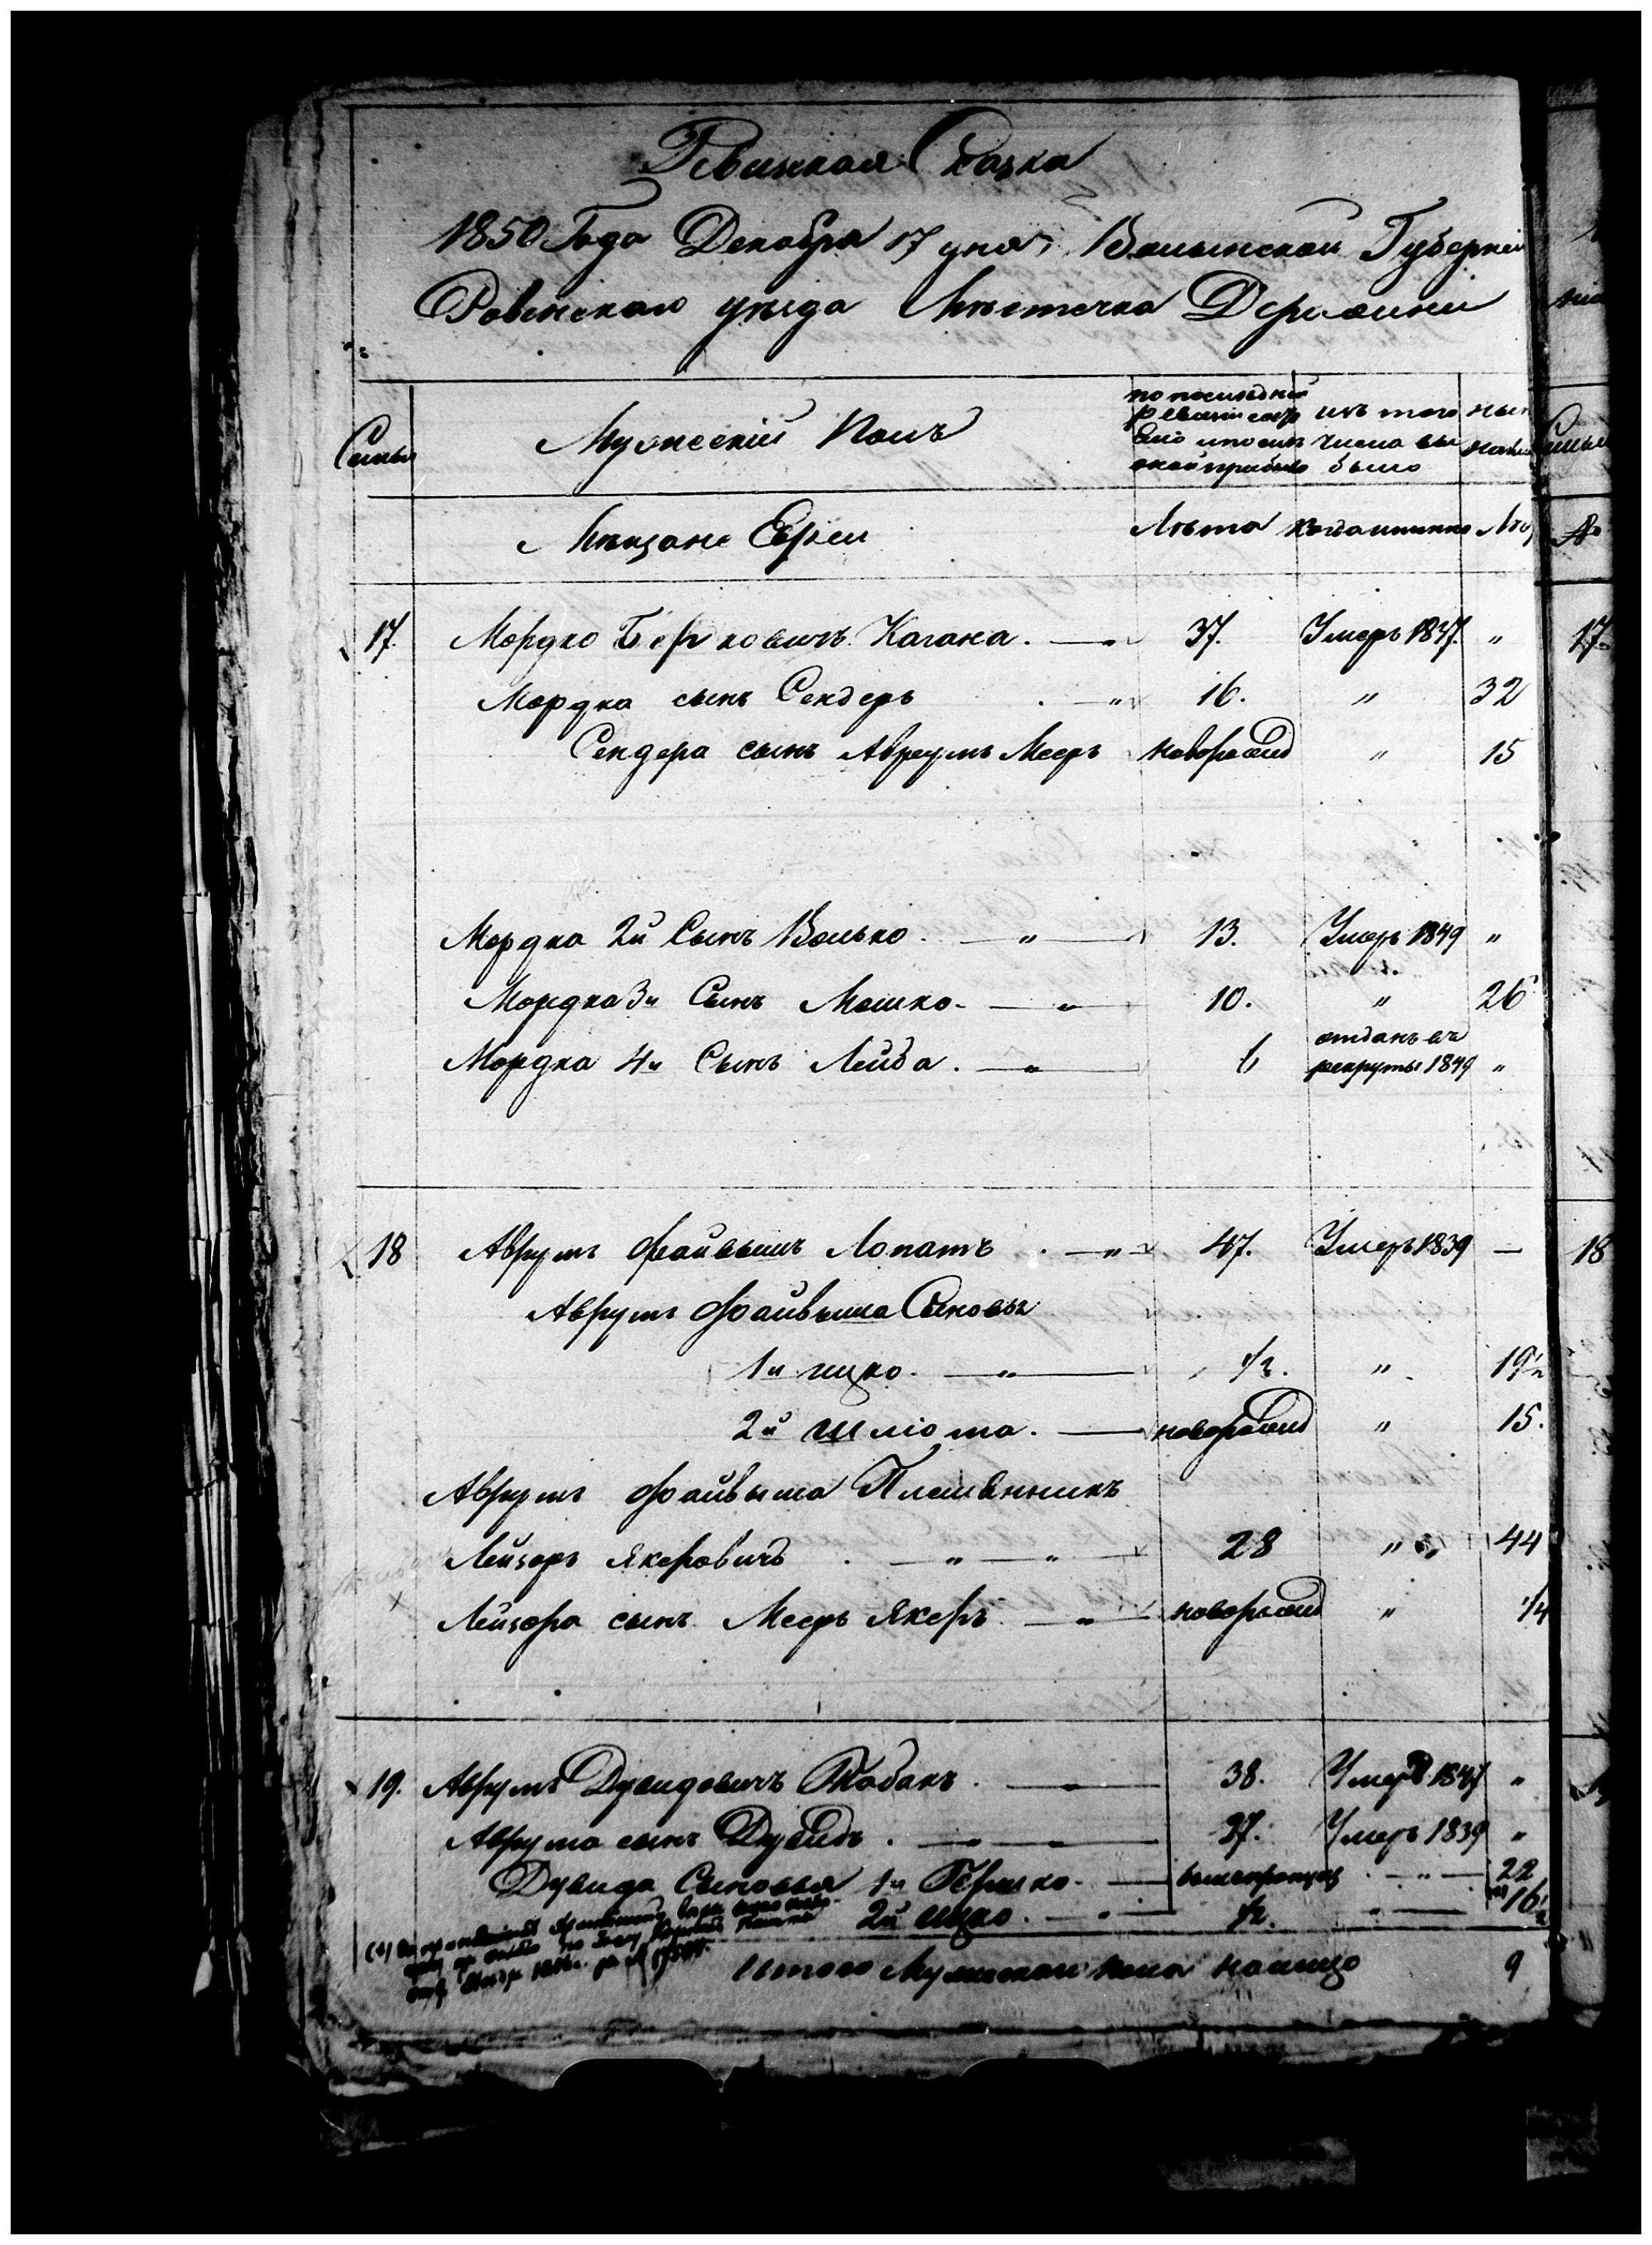 Ревизская Сказка
1850 Года Декабря 17 дня, Волынской Губерніи
Ровенскаго уѣзда Мѣстечка Держани
Семьи
Мужескій Полъ
по последней ревизіи состояло и после оной прибыло
изъ того числа выбыло
ныне
Семьи
Мѣщане Евреи
Лѣта
когда именно
Лѣт
№
17. Мордко Берковичъ Кагана. — " 37. Умеръ 1847. " 17
Мордка сынъ Сендеръ . — " 16. " 32
Сендера сынъ Аврумъ Мееръ новорожд " 15
Мордка 2й Сынъ Волько. — " — 13. Умеръ 1849 "
Мордка 3й Сынъ Мошко. — " — 10. " 26
Мордка 4й Сынъ Лейба. — " — 6 отданъ въ рекруты 1849 "
18 Аврумъ Файвишъ Лопатъ . — " 47. Умеръ 1839 — 18
Аврумъ Файвыша Сыновья
1й ицко. — " — 1/2. " 19 1/2
2й шліома. — новорожд " 15.
Аврумъ Файвыша Племянникъ
Лейзоръ Якеровичъ . — " — " — 28 " 44
Лейзора сынъ Мееръ Якеръ — " — новорожд " 1/4
19. Аврумъ Дувидовичъ Табакъ. — " — 38. Умеръ 1847 "
Аврума сынъ Дувидъ. — " — " — 27. Умеръ 1839 "
Дувида Сыновья 1й Гершко. — — " — 22
2й Ицко. — " — 1/2. — " — 16 1/2
Итого Мужескаго пола налицо 9